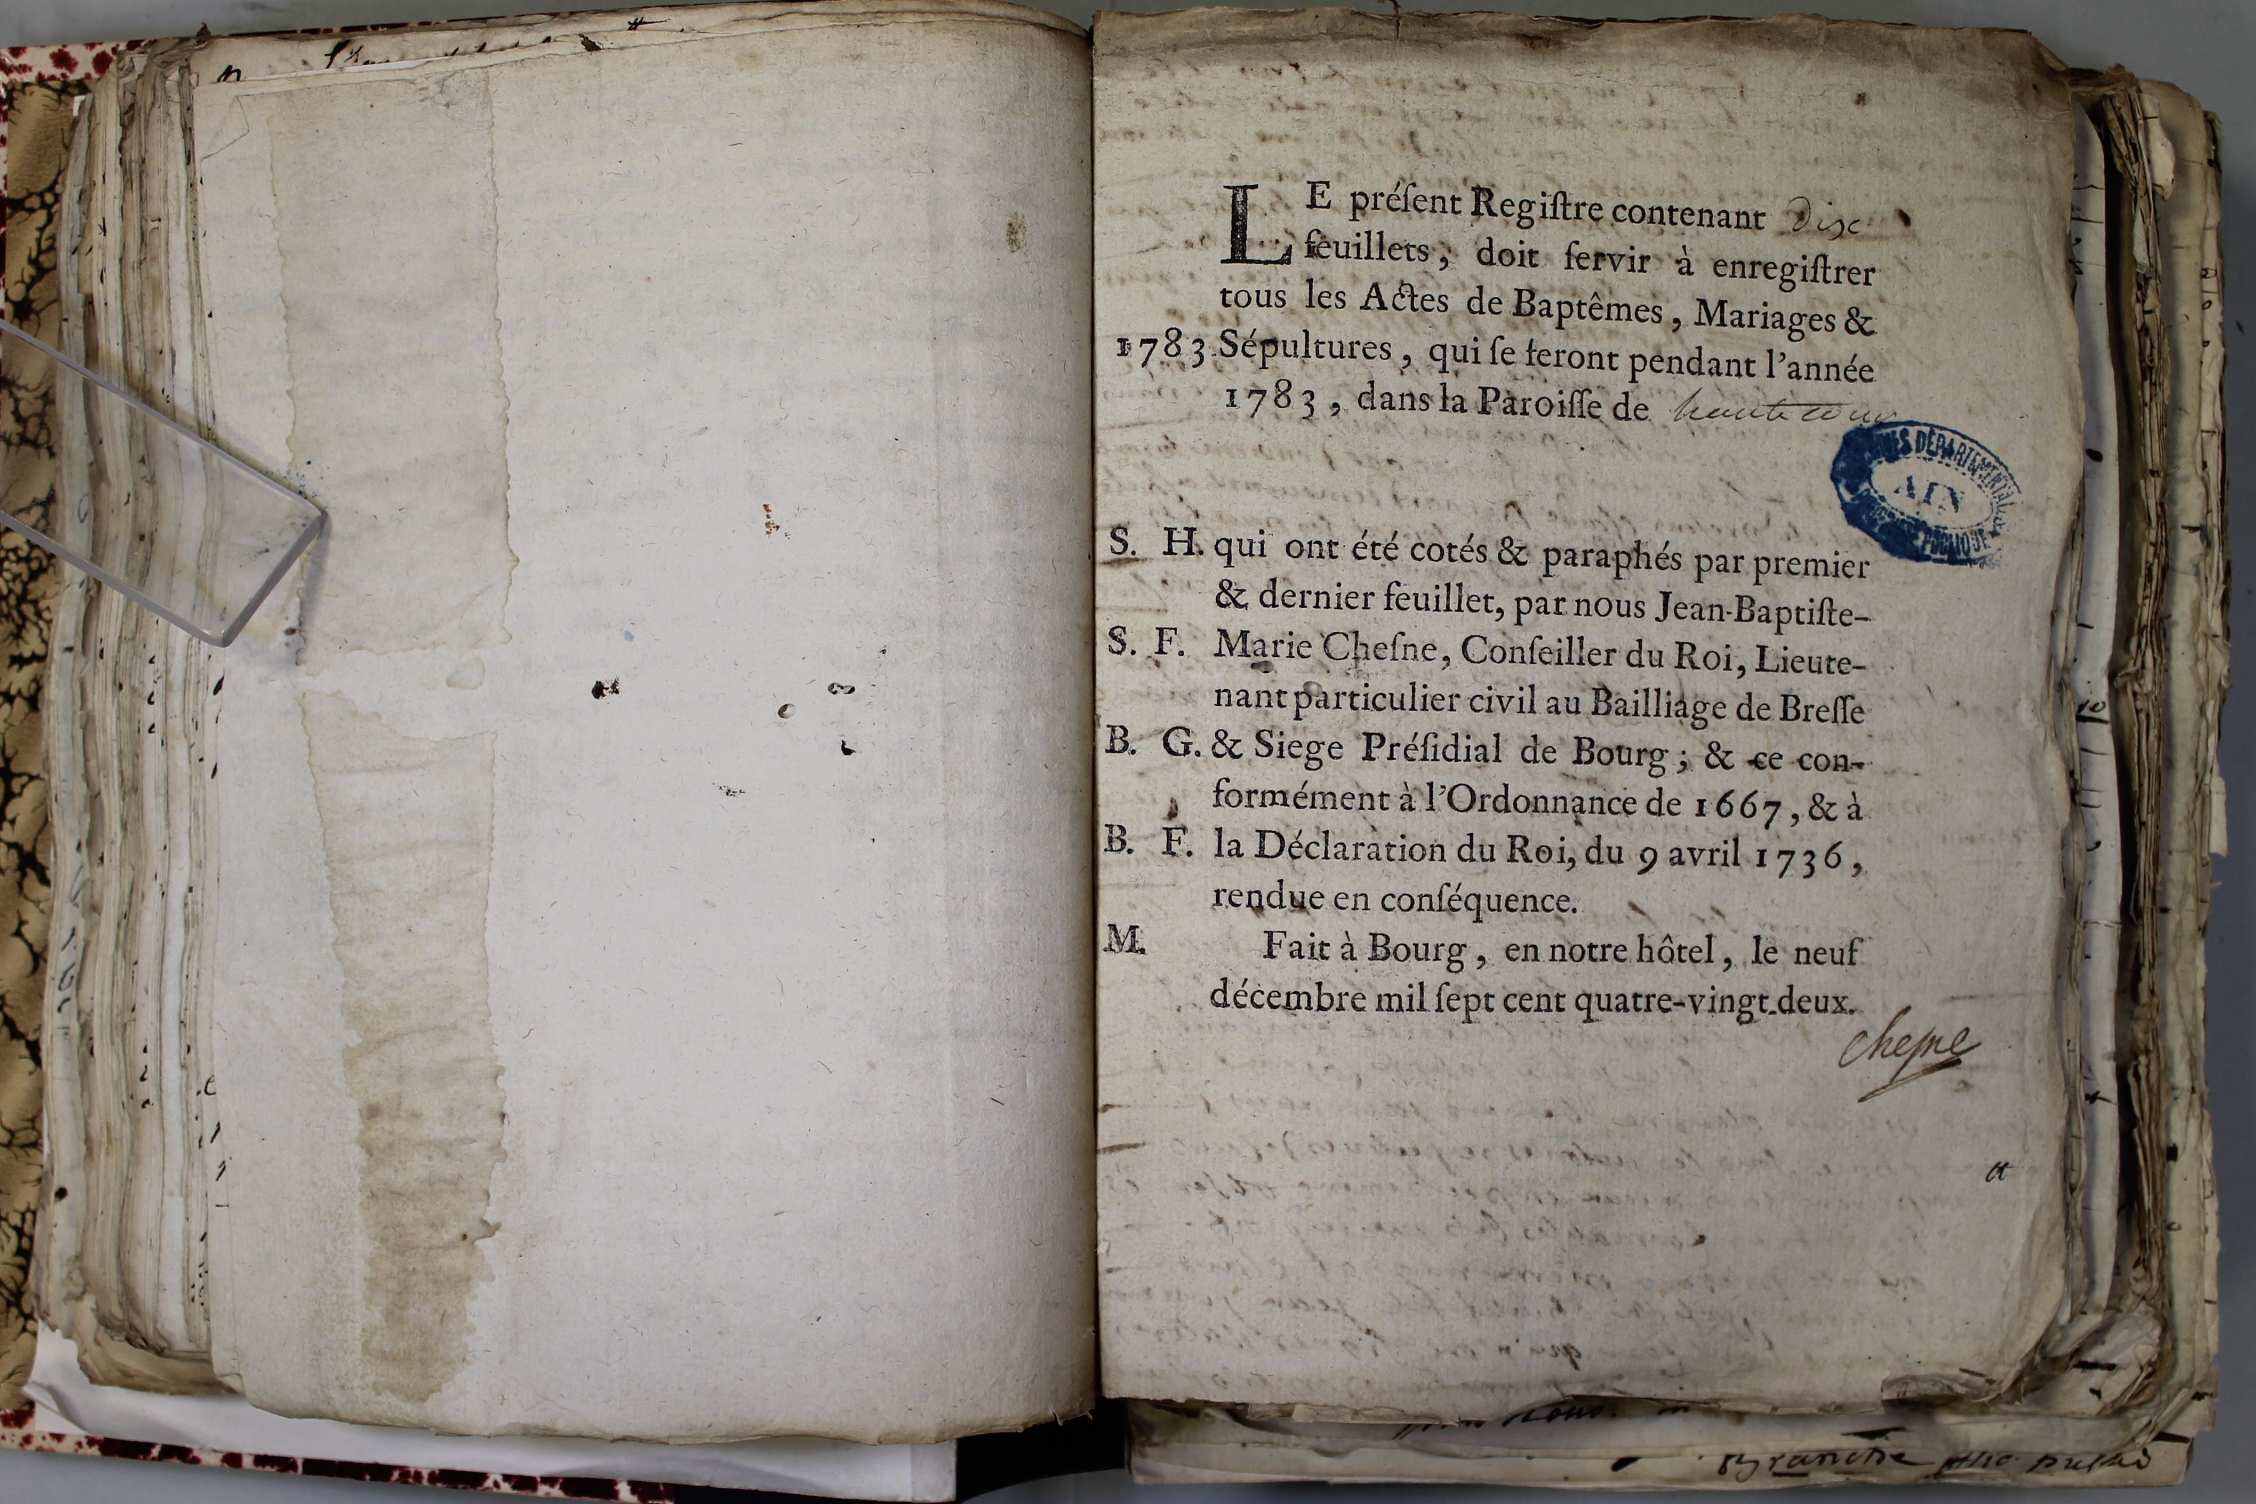 LE préſent Regiſtre contenant Dix
feuillets, doit ſervir à enregiſtrer
tous les Actes de Baptêmes, Mariages &
1783 Sépultures, qui ſe feront pendant l'année
1783, dans la Paroiſſe de hautecour
DÉPARTEMENTALES
AIN
S. H. qui ont été cotés & paraphés par premier
& dernier feuillet, par nous Jean-Baptiſte-
S. F. Marie Cheſne, Conſeiller du Roi, Lieute-
nant particulier civil au Bailliage de Breſſe
B. G. & Siege Préſidial de Bourg; & ce con-
formément à l'Ordonnance de 1667, & à
B. F. la Déclaration du Roi, du 9 avril 1736,
rendue en conſéquence.
M. Fait à Bourg, en notre hôtel, le neuf
décembre mil ſept cent quatre-vingt-deux.
Cheſne